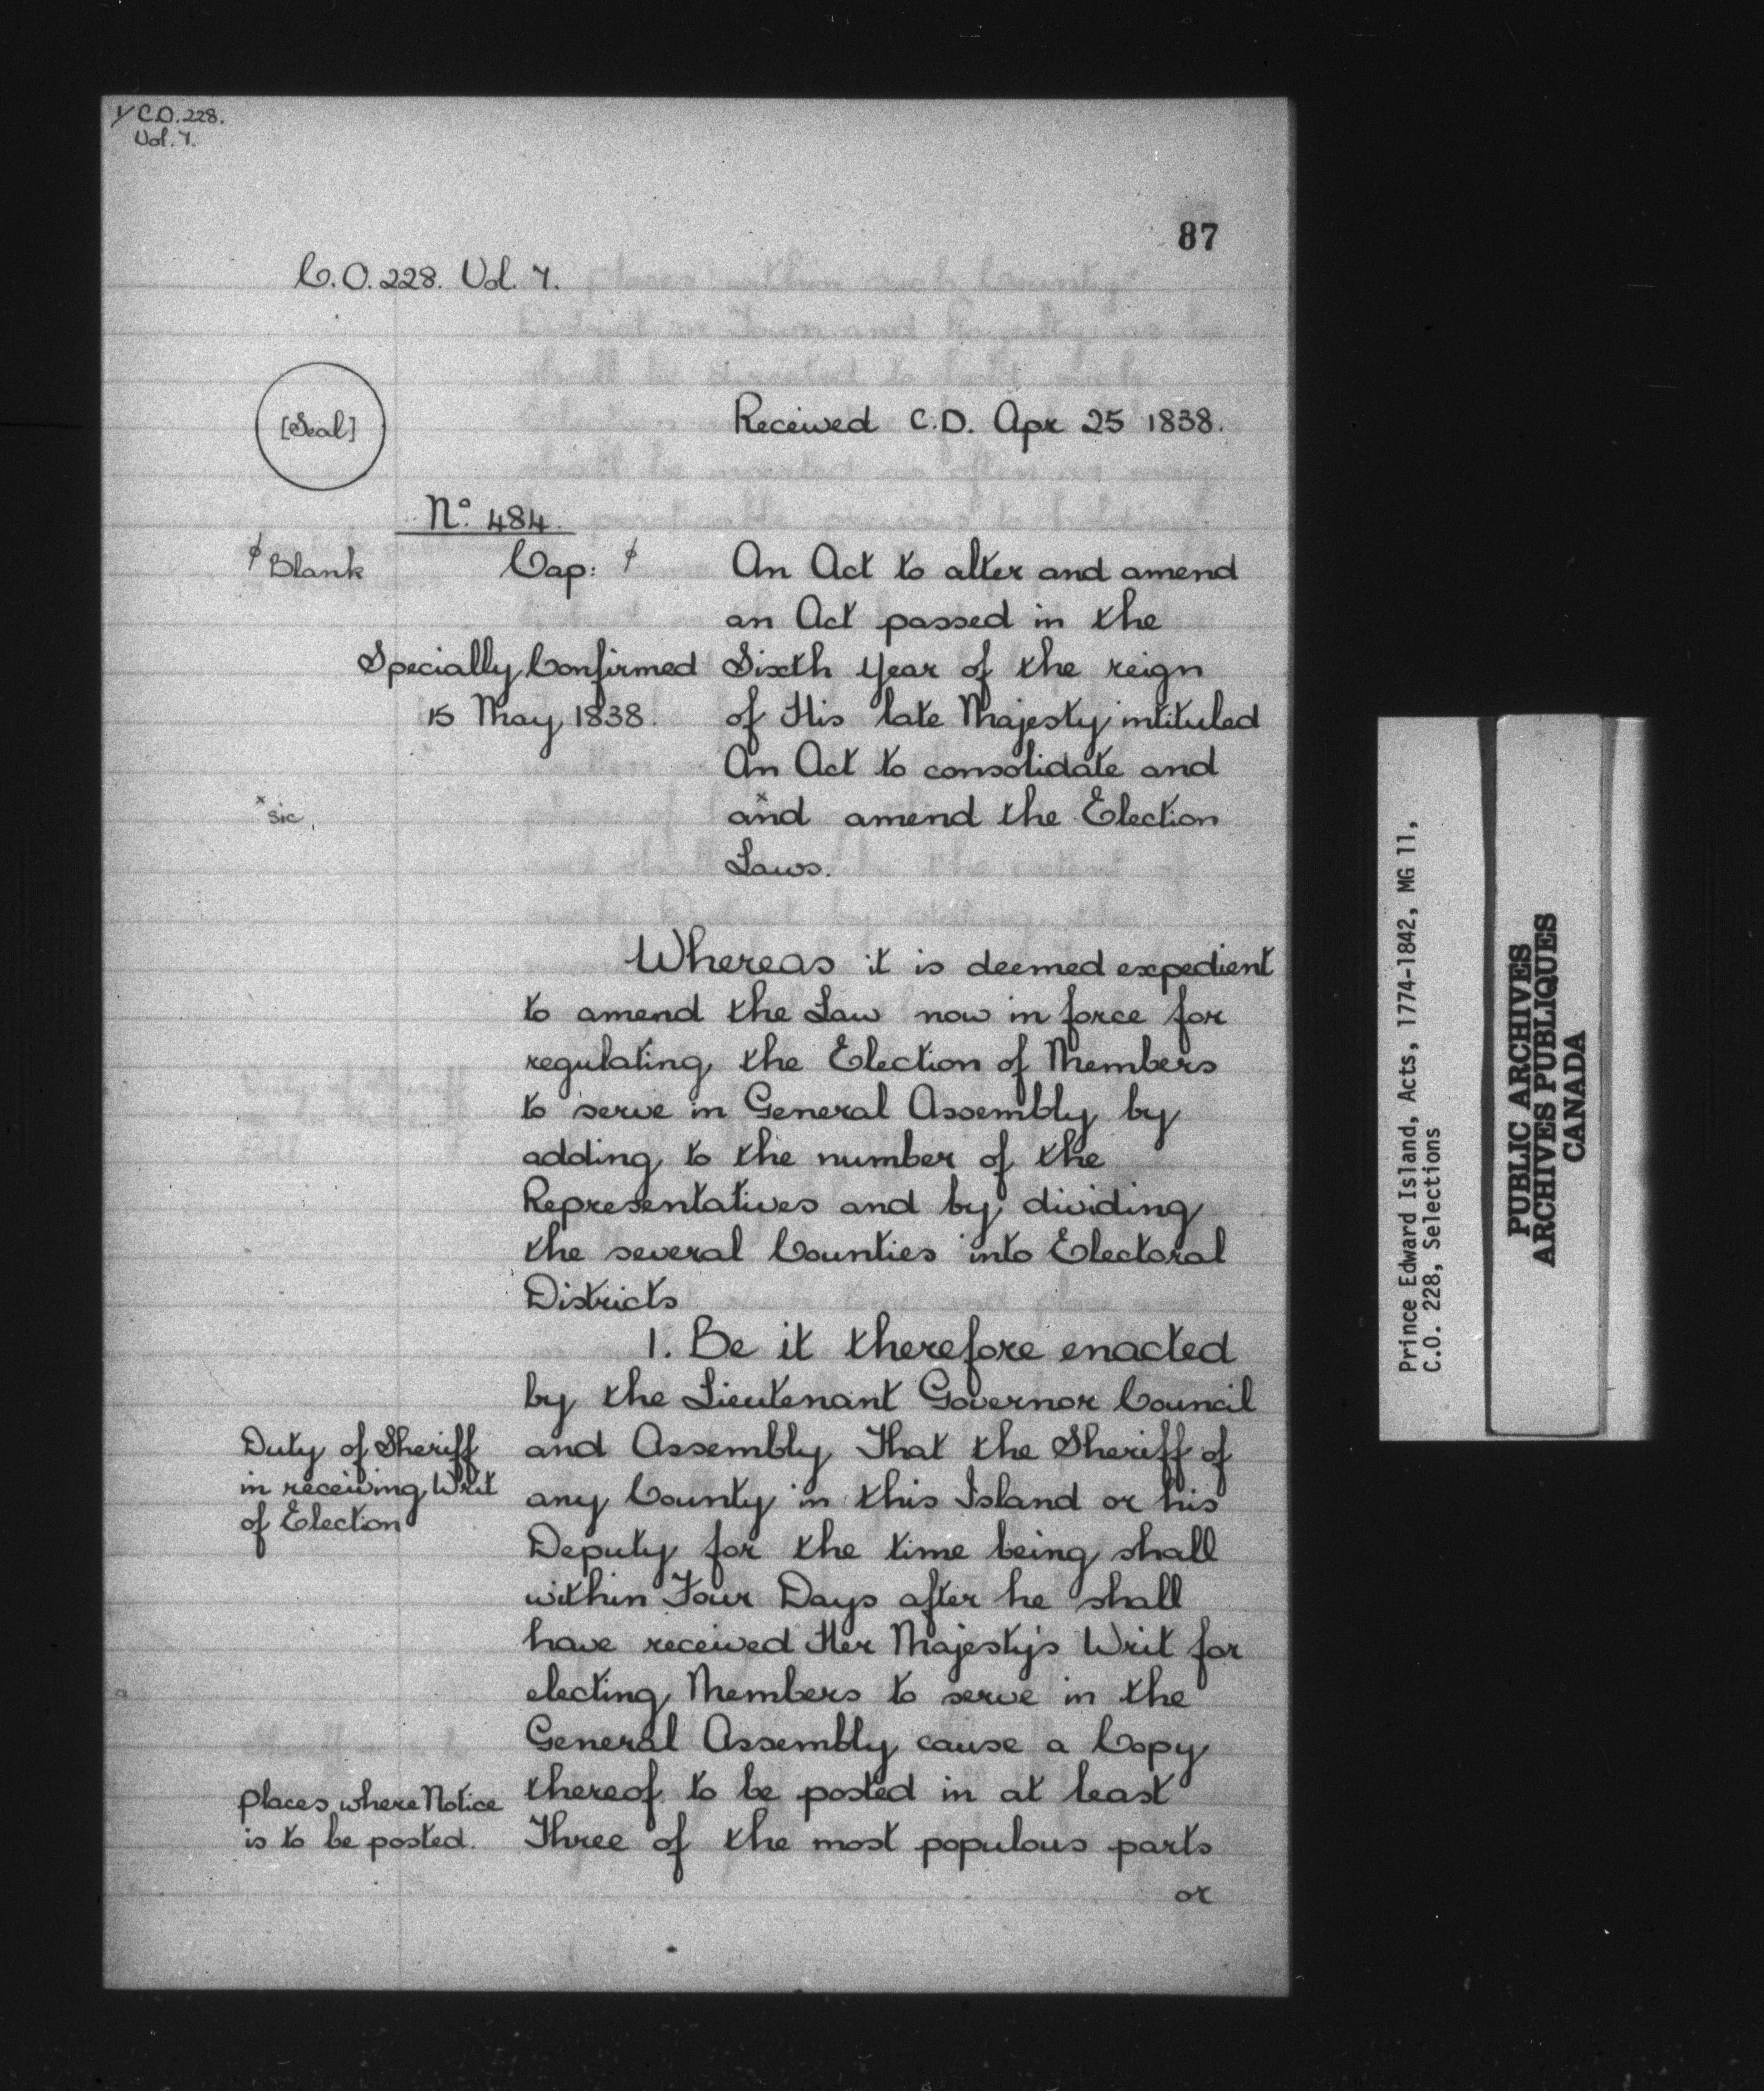 C.O.228.
Vol. 7.
87
C.O.228. Vol. 7.
[Seal]
Received C.O. Apr 25 1838.
No. 484.
Blank
Cap:
An Act to alter and amend
an Act passed in the
Specially Confirmed
Sixth Year of the reign
15 May, 1838.
of His late Majesty intituled
An Act to consolidate and
x sic.
and x amend the Election
Laws.
Whereas it is deemed expedient
to amend the Law now in force for
regulating the Election of Members
to serve in General Assembly by
adding to the number of the
Representatives and by dividing
the several Counties into Electoral
Districts
1. Be it therefore enacted
by the Lieutenant Governor Council
Duty of Sheriff
in receiving Writ
of Election
and Assembly That the Sheriff of
any County in this Island or his
Deputy for the time being shall
within Four Days after he shall
have received Her Majesty's Writ for
electing Members to serve in the
General Assembly cause a Copy
places where Notice
is to be posted.
thereof to be posted in at least
Three of the most populous parts
or
Prince Edward Island, Acts, 1774-1842, MG 11,
C.O. 228, Selections
PUBLIC ARCHIVES
ARCHIVES PUBLIQUES
CANADA